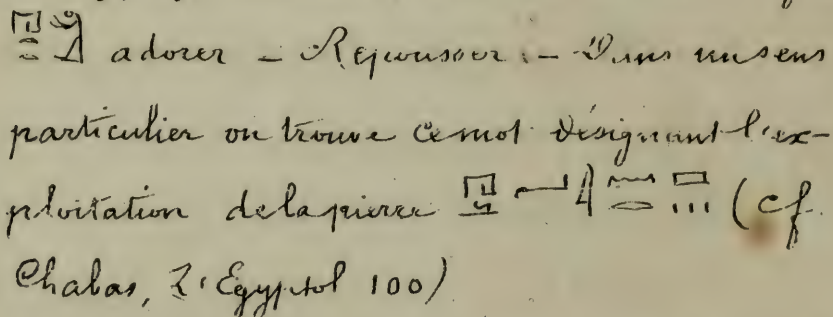 adorer – Repousser. – Dans un sens
particulier on trouve ce mot désignant l'ex-
ploitation de la pierre (cf.
Chabas, L'Egyptol 100)